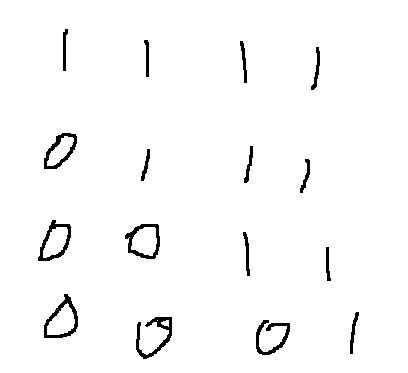 1 1 1 1
0 1 1 1
0 0 1 1
0 0 0 1